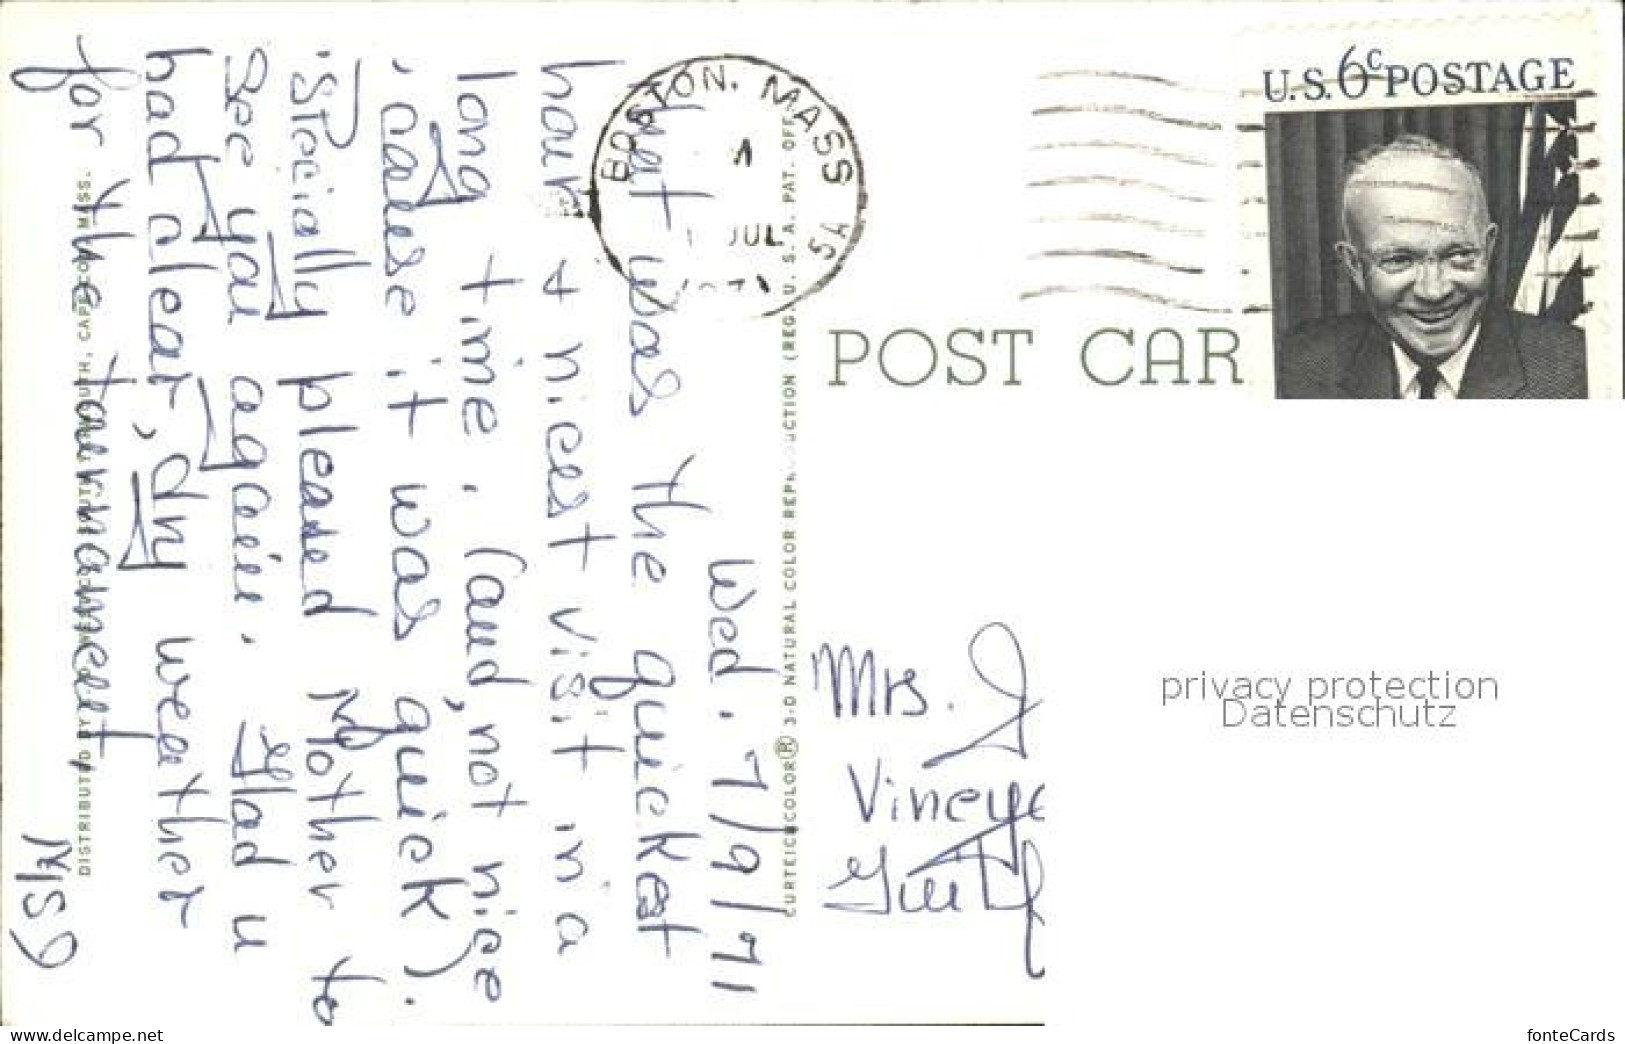 Wed. 7/9/71
that was the quickest
hour & nicest visit in a
long time. (and, not nice
'cause it was quick).
'Specially pleased Mother to
see you again. Glad u
had clear, dry weather
for the tournament
DISTRIBUTED BY
CURTEICHCOLOR® 3-D NATURAL COLOR REPRODUCTION (REG. U. S. A. PAT. OFF.
BOSTON, MASS
JUL
U.S. 6c POSTAGE
POST CAR
Mrs.
privacy protection
Datenschutz
www.delcampe.net
fonteCards